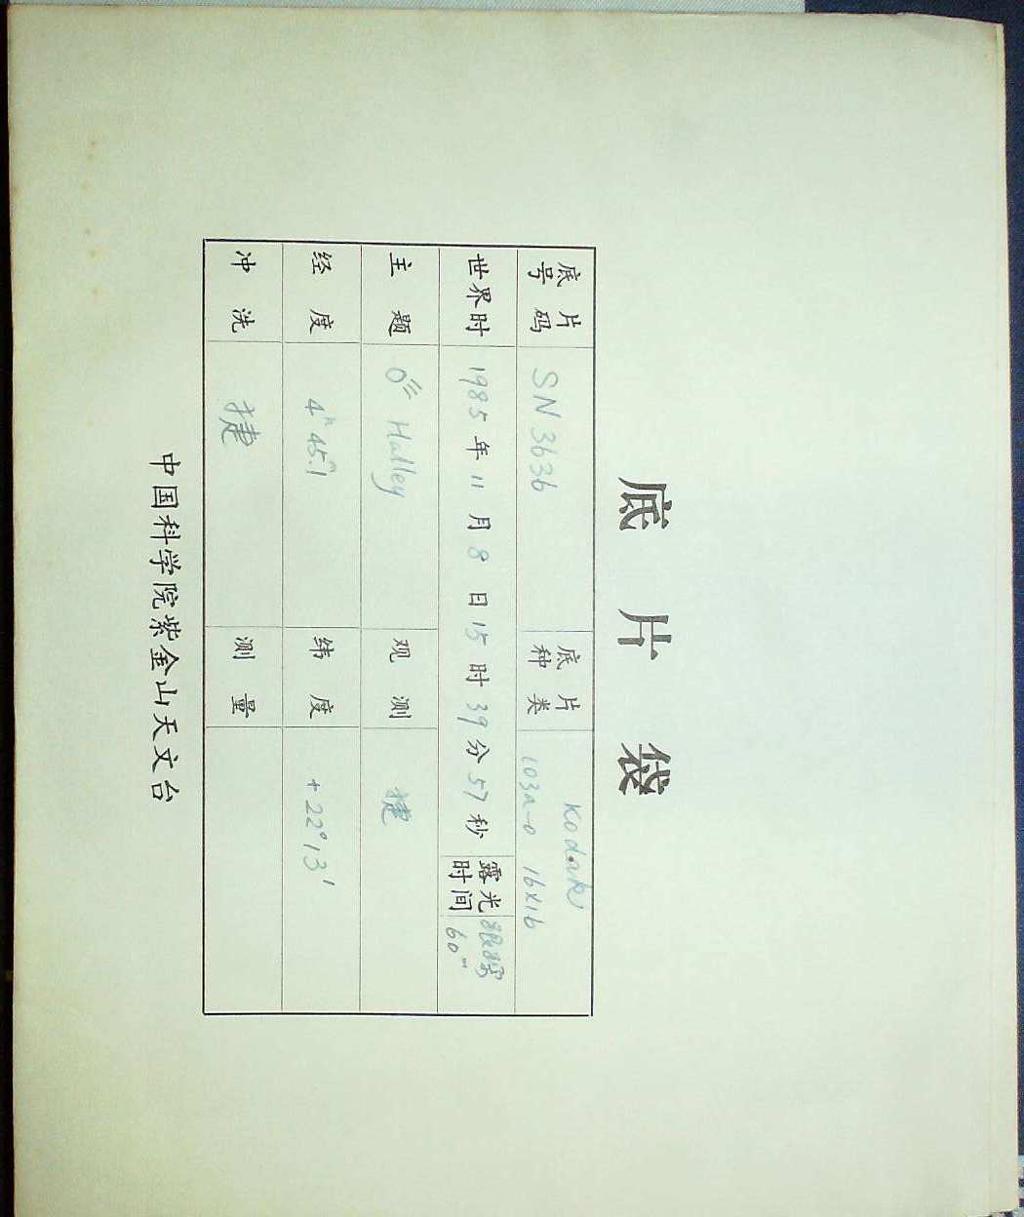 底片袋
底片号码 SN3636 底片种类 Kodak 103a-O 16x16
世界时 1985年11月8日15时39分57秒 露光时间 跟踪 60m
主题 Halley 观测 捷
经度 4h45m.1 纬度 +22°13′
冲洗 捷 测量
中国科学院紫金山天文台